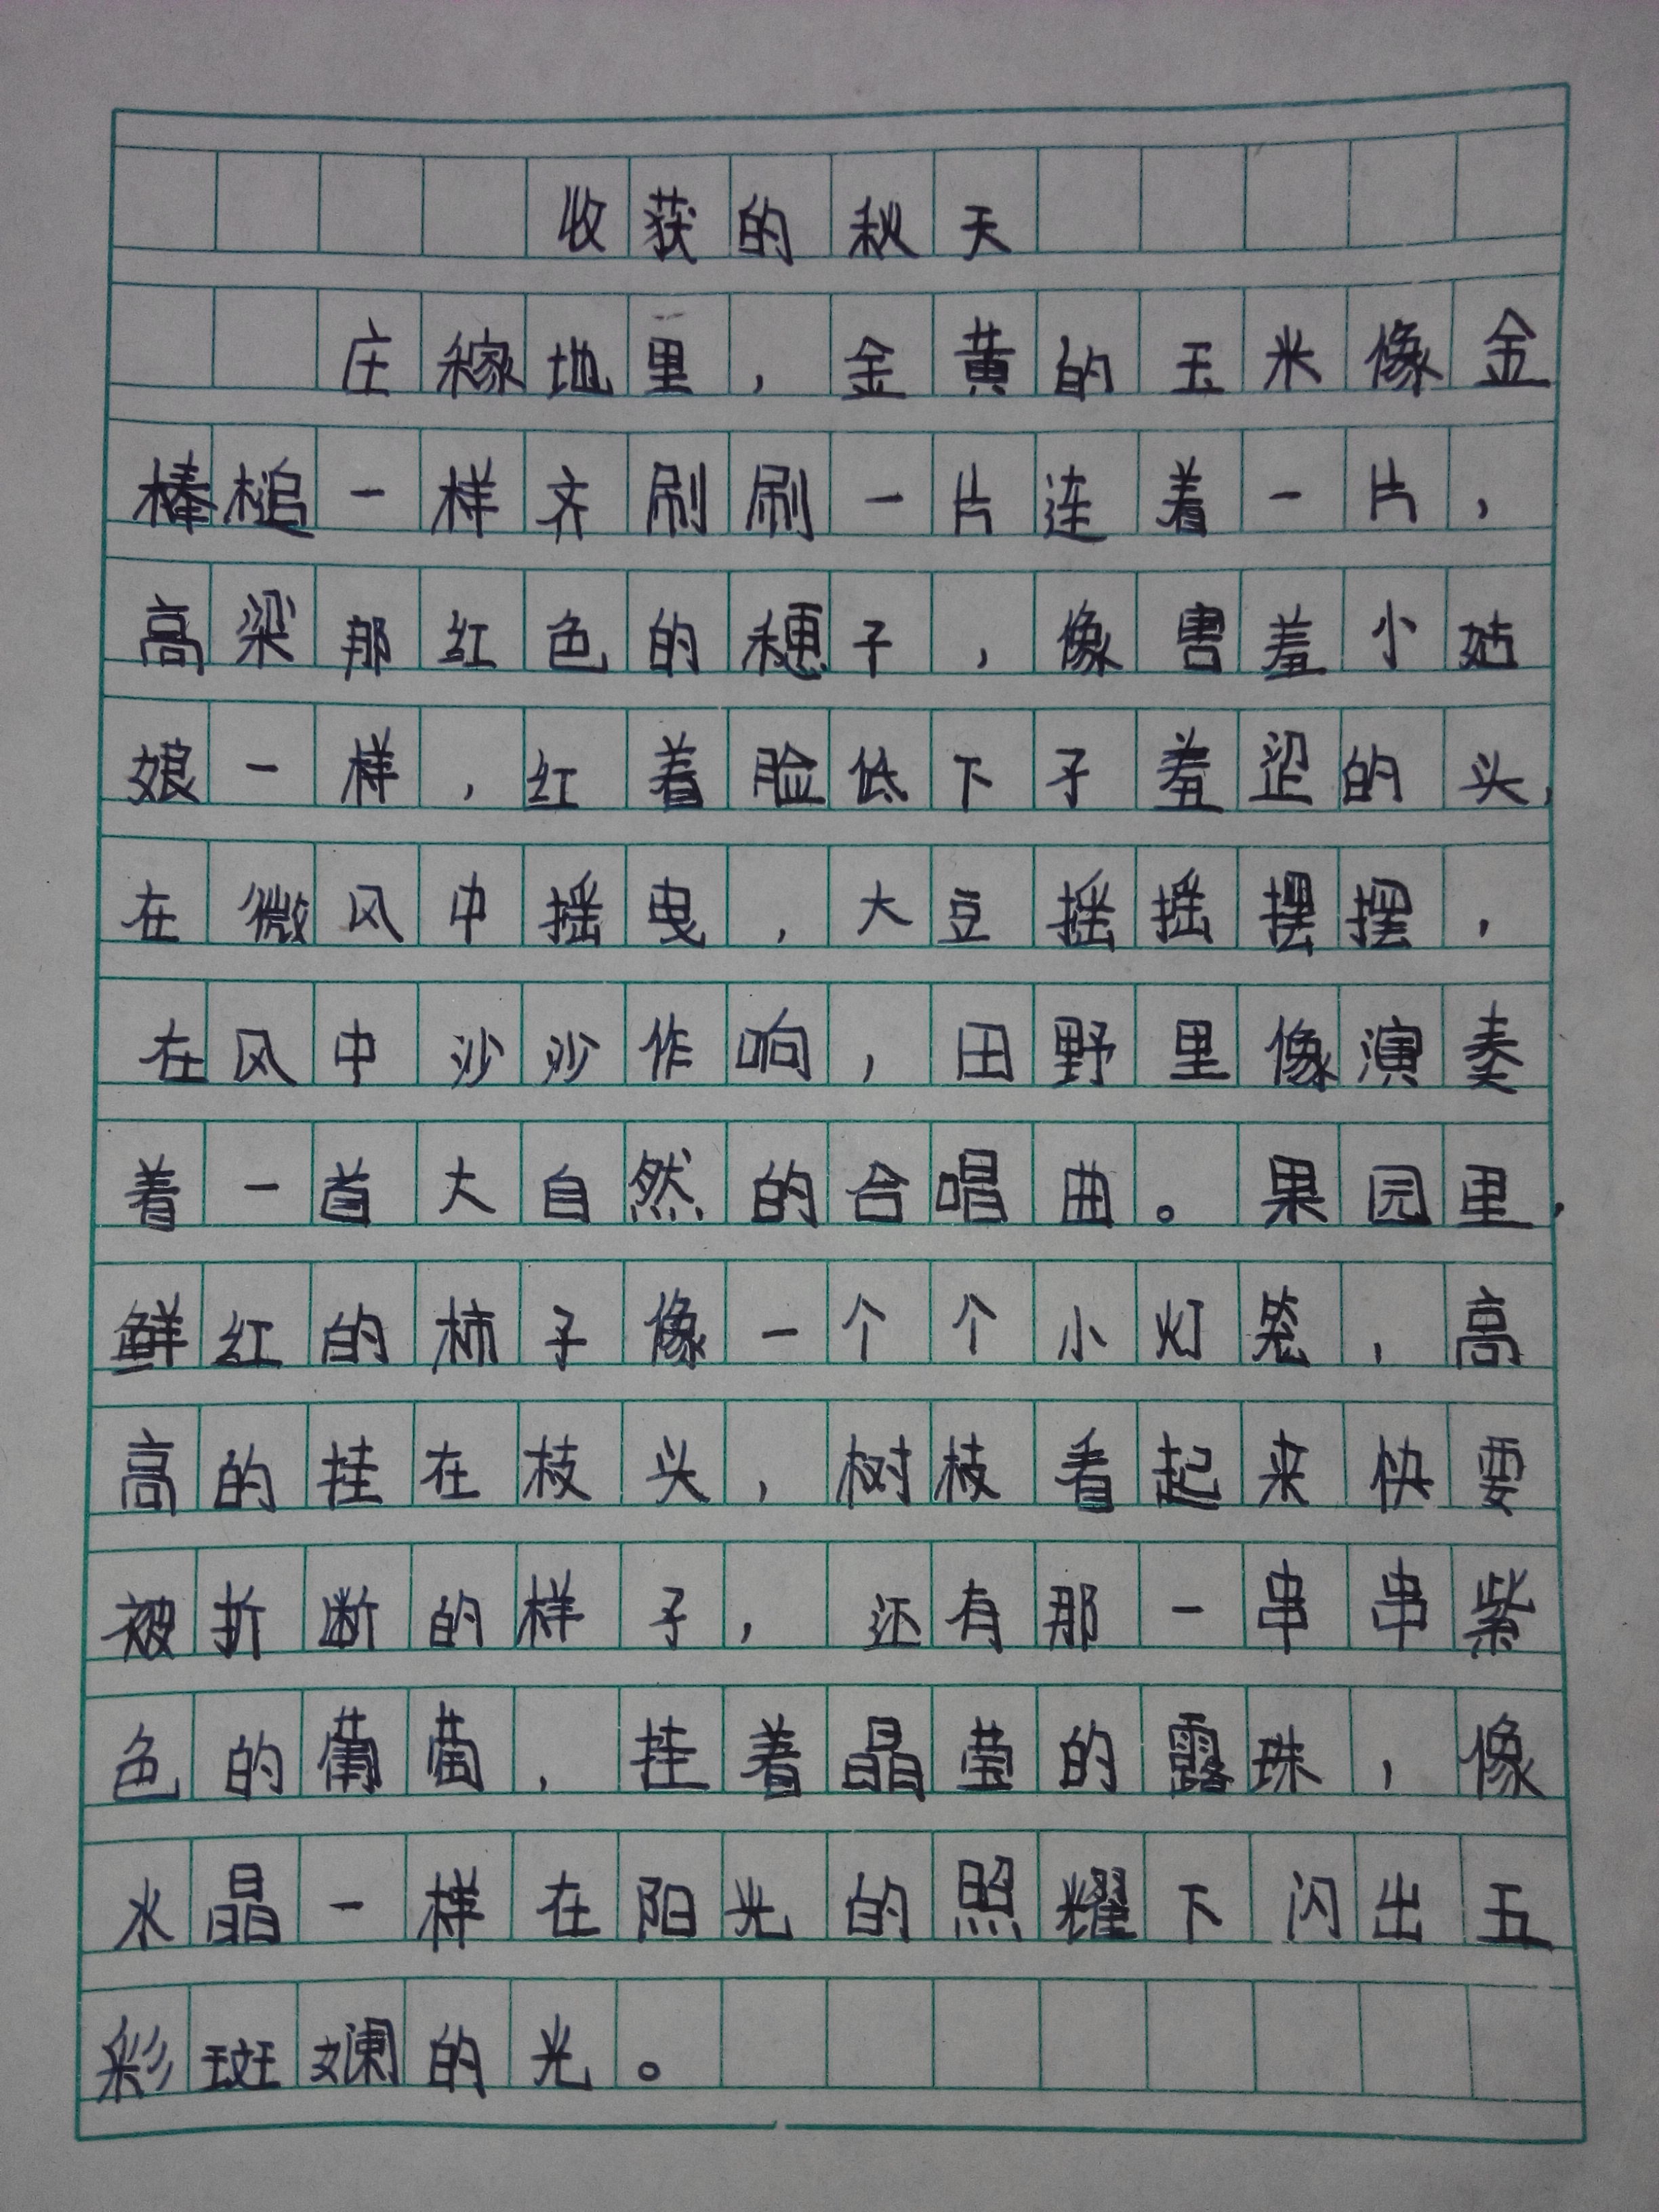 收获的秋天
庄稼地里，金黄的玉米像金
棒槌一样齐刷刷一片连着一片，
高梁那红色的穗子，像害羞小姑
娘一样，红着脸低下子羞涩的头，
在微风中摇曳，大豆摇摇摆摆，
在风中沙沙作响，田野里像演奏
着一首大自然的合唱曲。果园里，
鲜红的柿子像一个个小灯笼，高
高的挂在枝头，树枝看起来快要
被折断的样子，还有那一串串紫
色的葡萄，挂着晶莹的露珠，像
水晶一样在阳光的照耀下闪出五
彩斑斓的光。